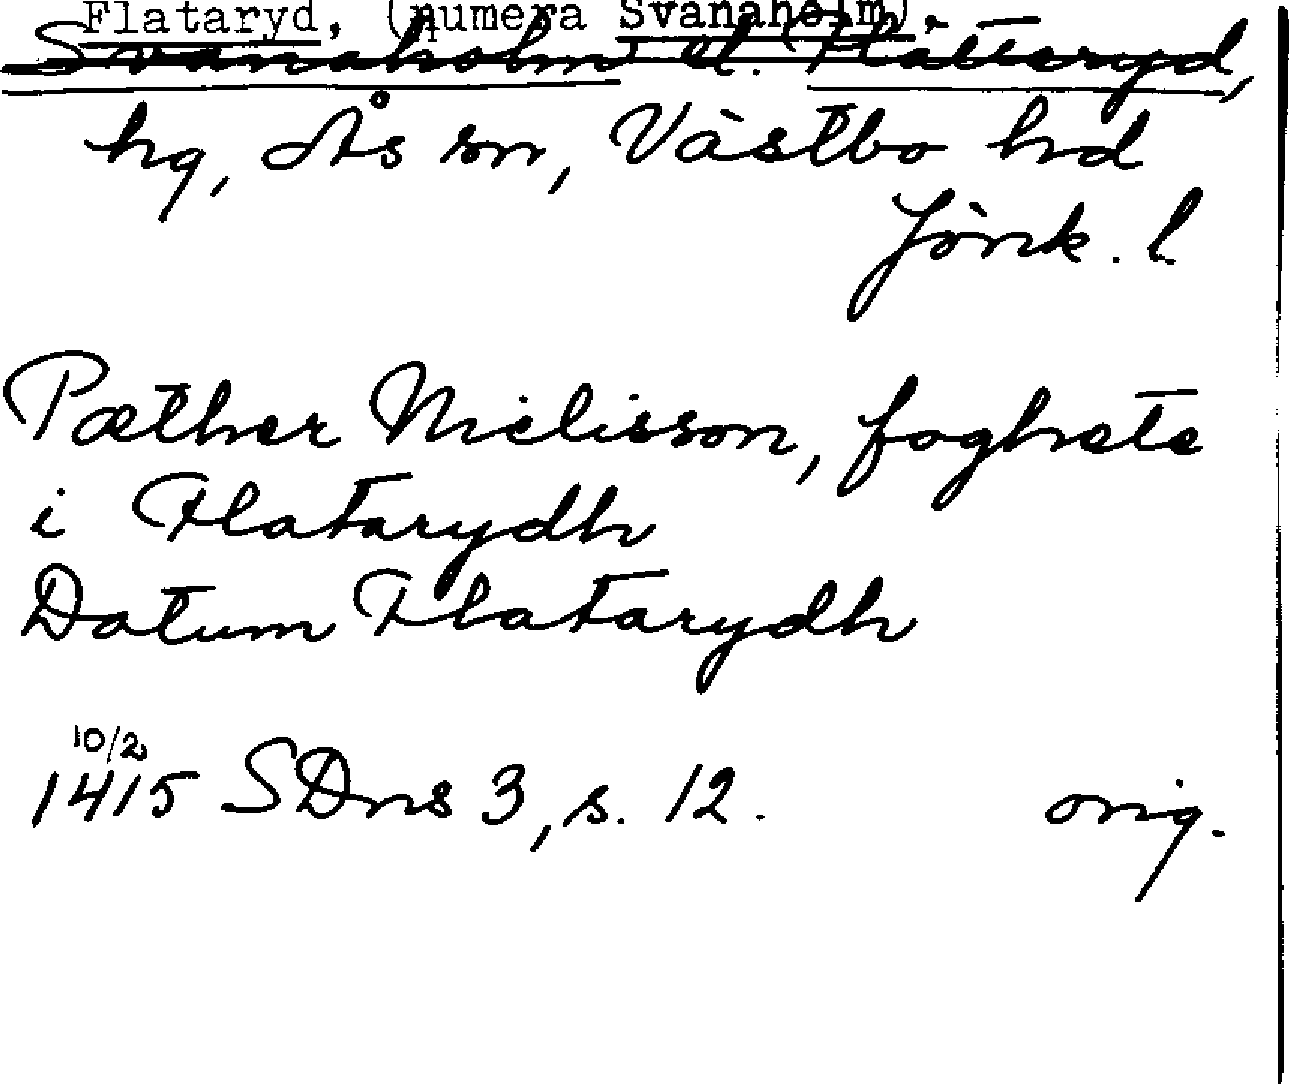 Flataryd, (numera Svanaholm),
Svanaholm el. Flatteryd,
hg, Ås sn, Västbo hd
Jönk. l.
Pæther Niclisson, foghete
i Flatarydh
Datum Flatarydh
10/2
1415 SDns 3, s. 12. orig.